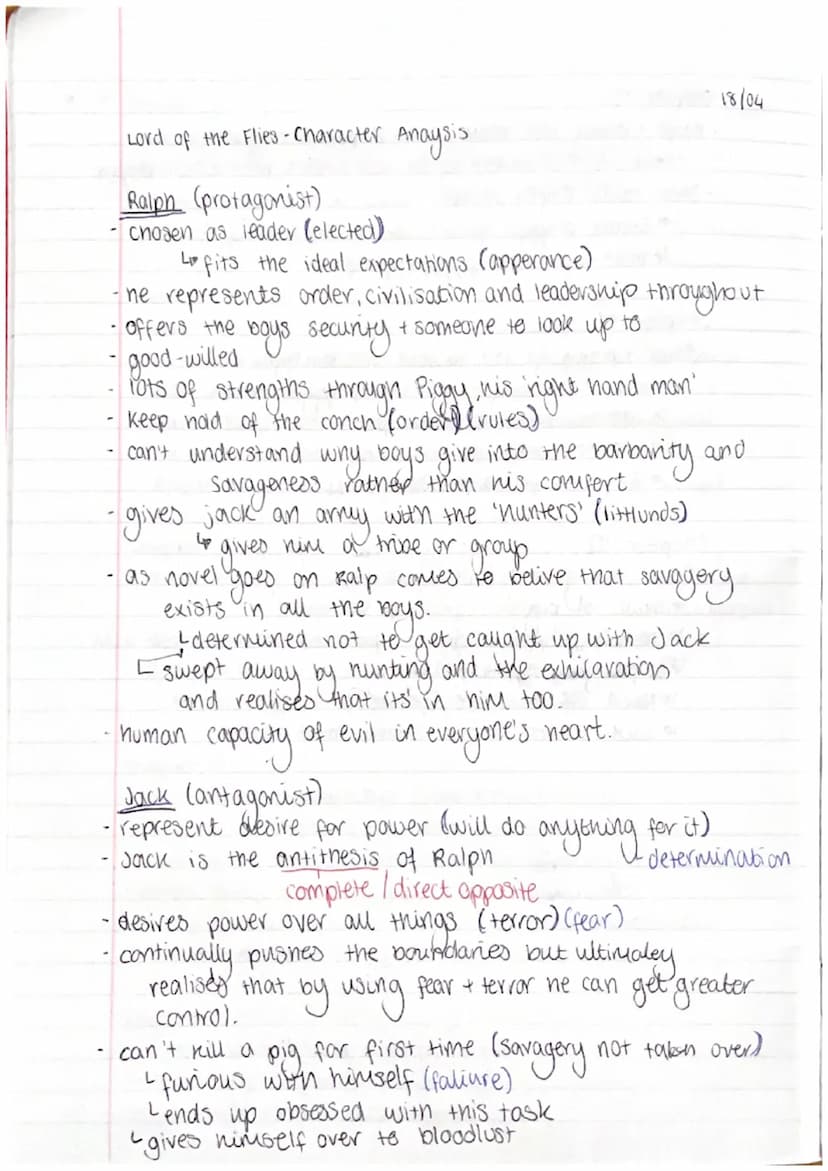 18/04
Lord of the Flies - Character Anaysis
Ralph (protagonist)
- chosen as leader (elected)
↳ fits the ideal expectations (apperance)
- he represents order, civilisation and leadership throughout
- offers the boys security + someone to look up to
- good-willed
- lots of strengths through Piggy, his 'right hand man'
- keep hold of the conch (order) (rules)
- can't understand why boys give into the barbarity and
savageness rather than his comfort
- gives jack an army with the 'hunters' (littlunds)
↳ gives him a tribe or group
- as novel goes on Ralp comes to belive that savagery
exists in all the boys.
↳ determined not to get caught up with Jack
↳ swept away by hunting and the exhilaration
and realises that its' in him too.
- human capacity of evil in everyone's heart.
Jack (antagonist)
- represent desire for power (will do anything for it)
- Jack is the antithesis of Ralph ↳ determination
complete / direct opposite
- desires power over all things (terror) (fear)
- continually pushes the boundaries but ultimaley
realises that by using fear + terror he can get greater
control.
- can't kill a pig for first time (savagery not taken over)
↳ furious with himself (faliure)
↳ ends up obsessed with this task
↳ gives himself over to bloodlust